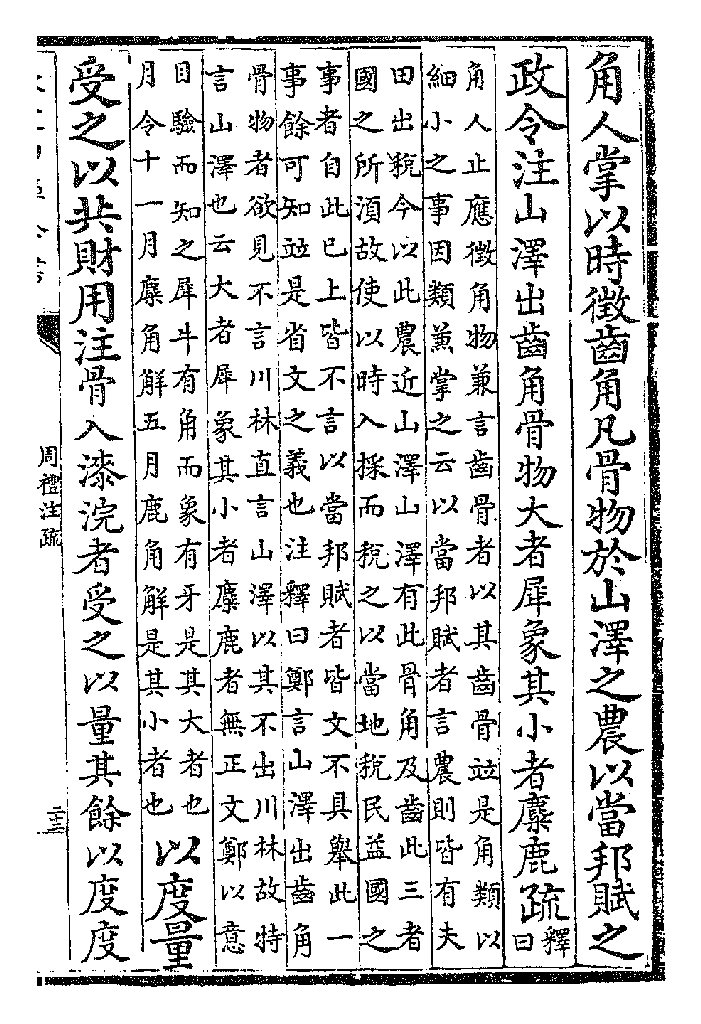 角人掌以時徵齒角凡骨物於山澤之農以當邦賦之
政令注山澤出齒角骨物大者犀象其小者麋鹿疏釋曰
角人止應徵角物兼言齒骨者以其齒骨竝是角類以
細小之事因類兼掌之云以當邦賦者言農則皆有夫
田出稅今以此農近山澤山澤有此骨角及齒此三者
國之所湏故使以時入採而稅之以當地稅民益國之
事者自此已上皆不言以當邦賦者皆文不具舉此一
事餘可知竝是省文之義也注釋曰鄭言山澤出齒角
骨物者欲見不言川林直言山澤以其不出川林故特
言山澤也云大者犀象其小者麋鹿者無正文鄭以意
目驗而知之犀牛有角而象有牙是其大者也
月令十一月麋角解五月鹿角解是其小者也
以度量
受之以共財用注骨入漆浣者受之以量其餘以度度
周禮注疏